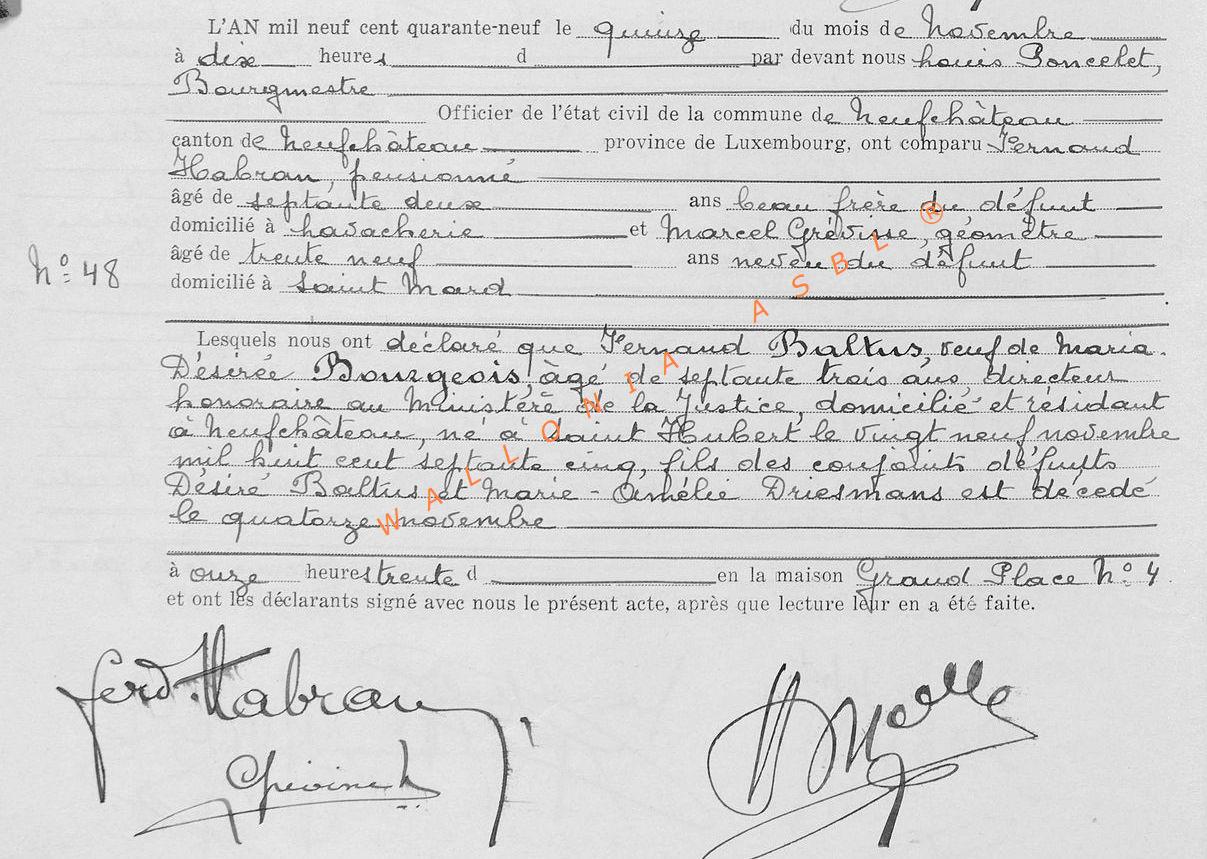 L'AN mil neuf cent quarante-neuf le quinze du mois de Novembre
à dix heures d par devant nous Louis Poncelet,
Bourgmestre
Officier de l'état civil de la commune de Neufchâteau
canton de Neufchâteau province de Luxembourg, ont comparu Fernand
Habran, pensionné
âgé de septante deux ans beau frère du défunt
domicilié à Lavacherie et Marcel Grévisse, géomètre
âgé de trente neuf ans neveu du défunt
N° 48
domicilié à Saint Mard
Lesquels nous ont déclaré que Fernand Baltus, veuf de Maria
Désirée Bourgeois, âgé de septante trois ans, directeur
honoraire au Ministère de la Justice, domicilié et résidant
à Neufchâteau, né à Saint Hubert le vingt neuf novembre
mil huit cent septante cinq, fils des conjoints défunts
Désiré Baltus et Marie - Amélie Driesmans est décédé
le quatorze novembre
à onze heures trente d en la maison Grand Place N° 4
et ont les déclarants signé avec nous le présent acte, après que lecture leur en a été faite.
Ferd Habran
WALLONIA ASBL ®